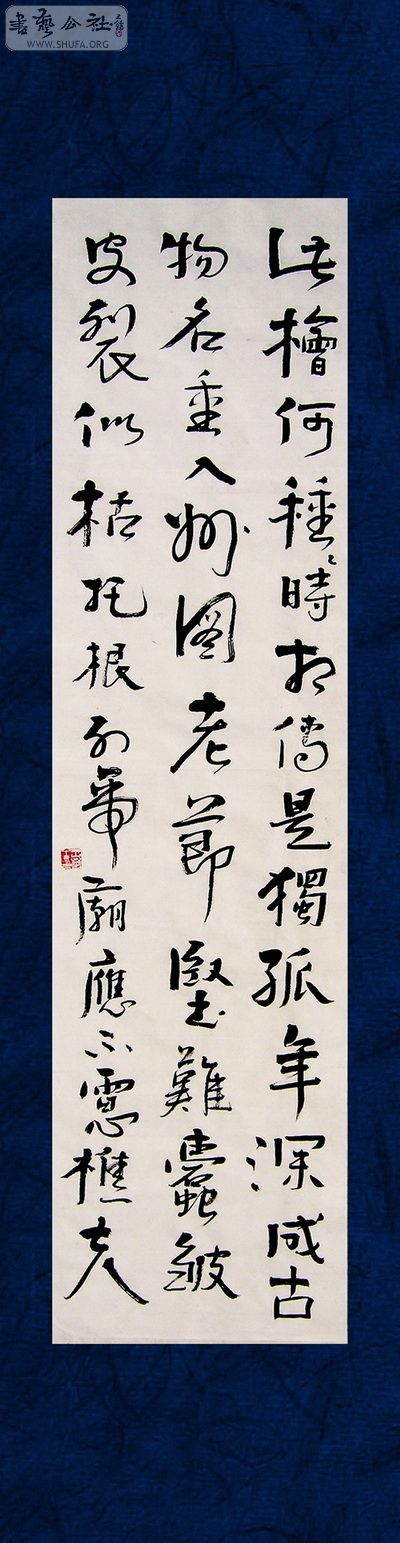 書藝公社
WWW.SHUFA.ORG
此檜何種時相傳是獨孤年深成古
物名重入州圖老節堅難蠹皴
皮裂似枯托根列帝廟應不慮樵夫